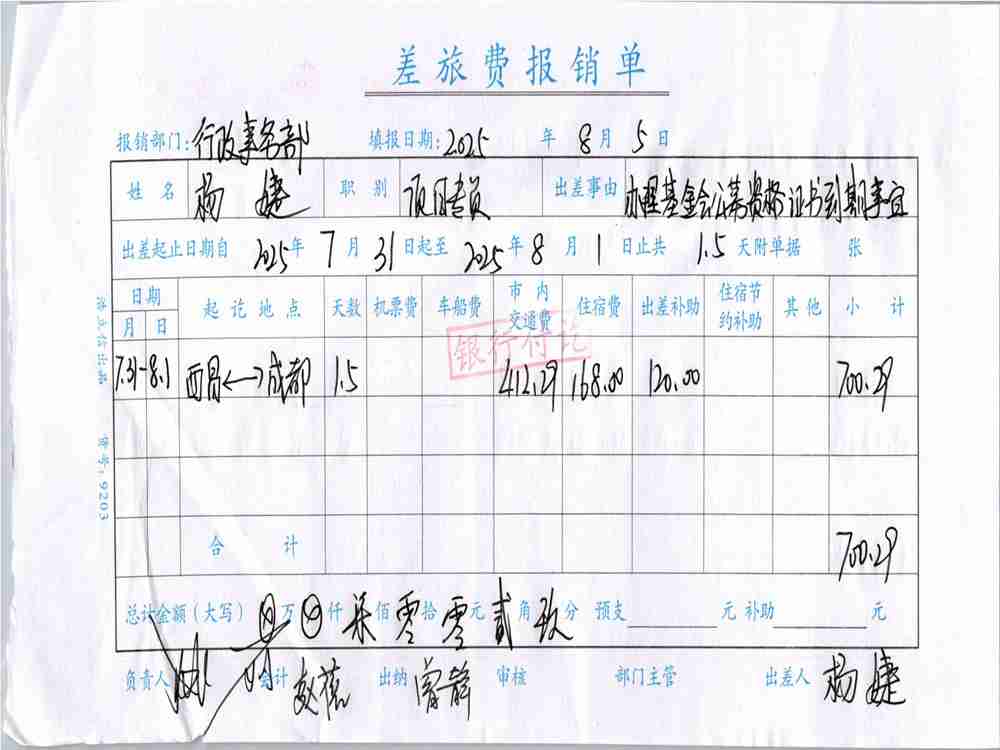 差旅费报销单
报销部门:行政事务部 填报日期:2025 年 8 月 5 日
姓名 杨婕 职别 项目专员 出差事由 办理基金会公募资格证书到期事宜
出差起止日期自 2025 年 7 月 31 日起至 2025 年 8 月 1 日止共 1.5 天附单据 张
日期 起讫地点 天数 机票费 车船费 市内交通费 住宿费 出差补助 住宿节约补助 其他 小计
月 日
7.31-8.1 西昌←→成都 1.5 412.29 168.00 120.00 700.29
银行付讫
合计 700.29
总计金额(大写) ⊗万⊗仟柒佰零拾零元贰角玖分 预支 元 补助 元
负责人 会计 赵蓓 出纳 曾静 审核 部门主管 出差人 杨婕
货号:9203